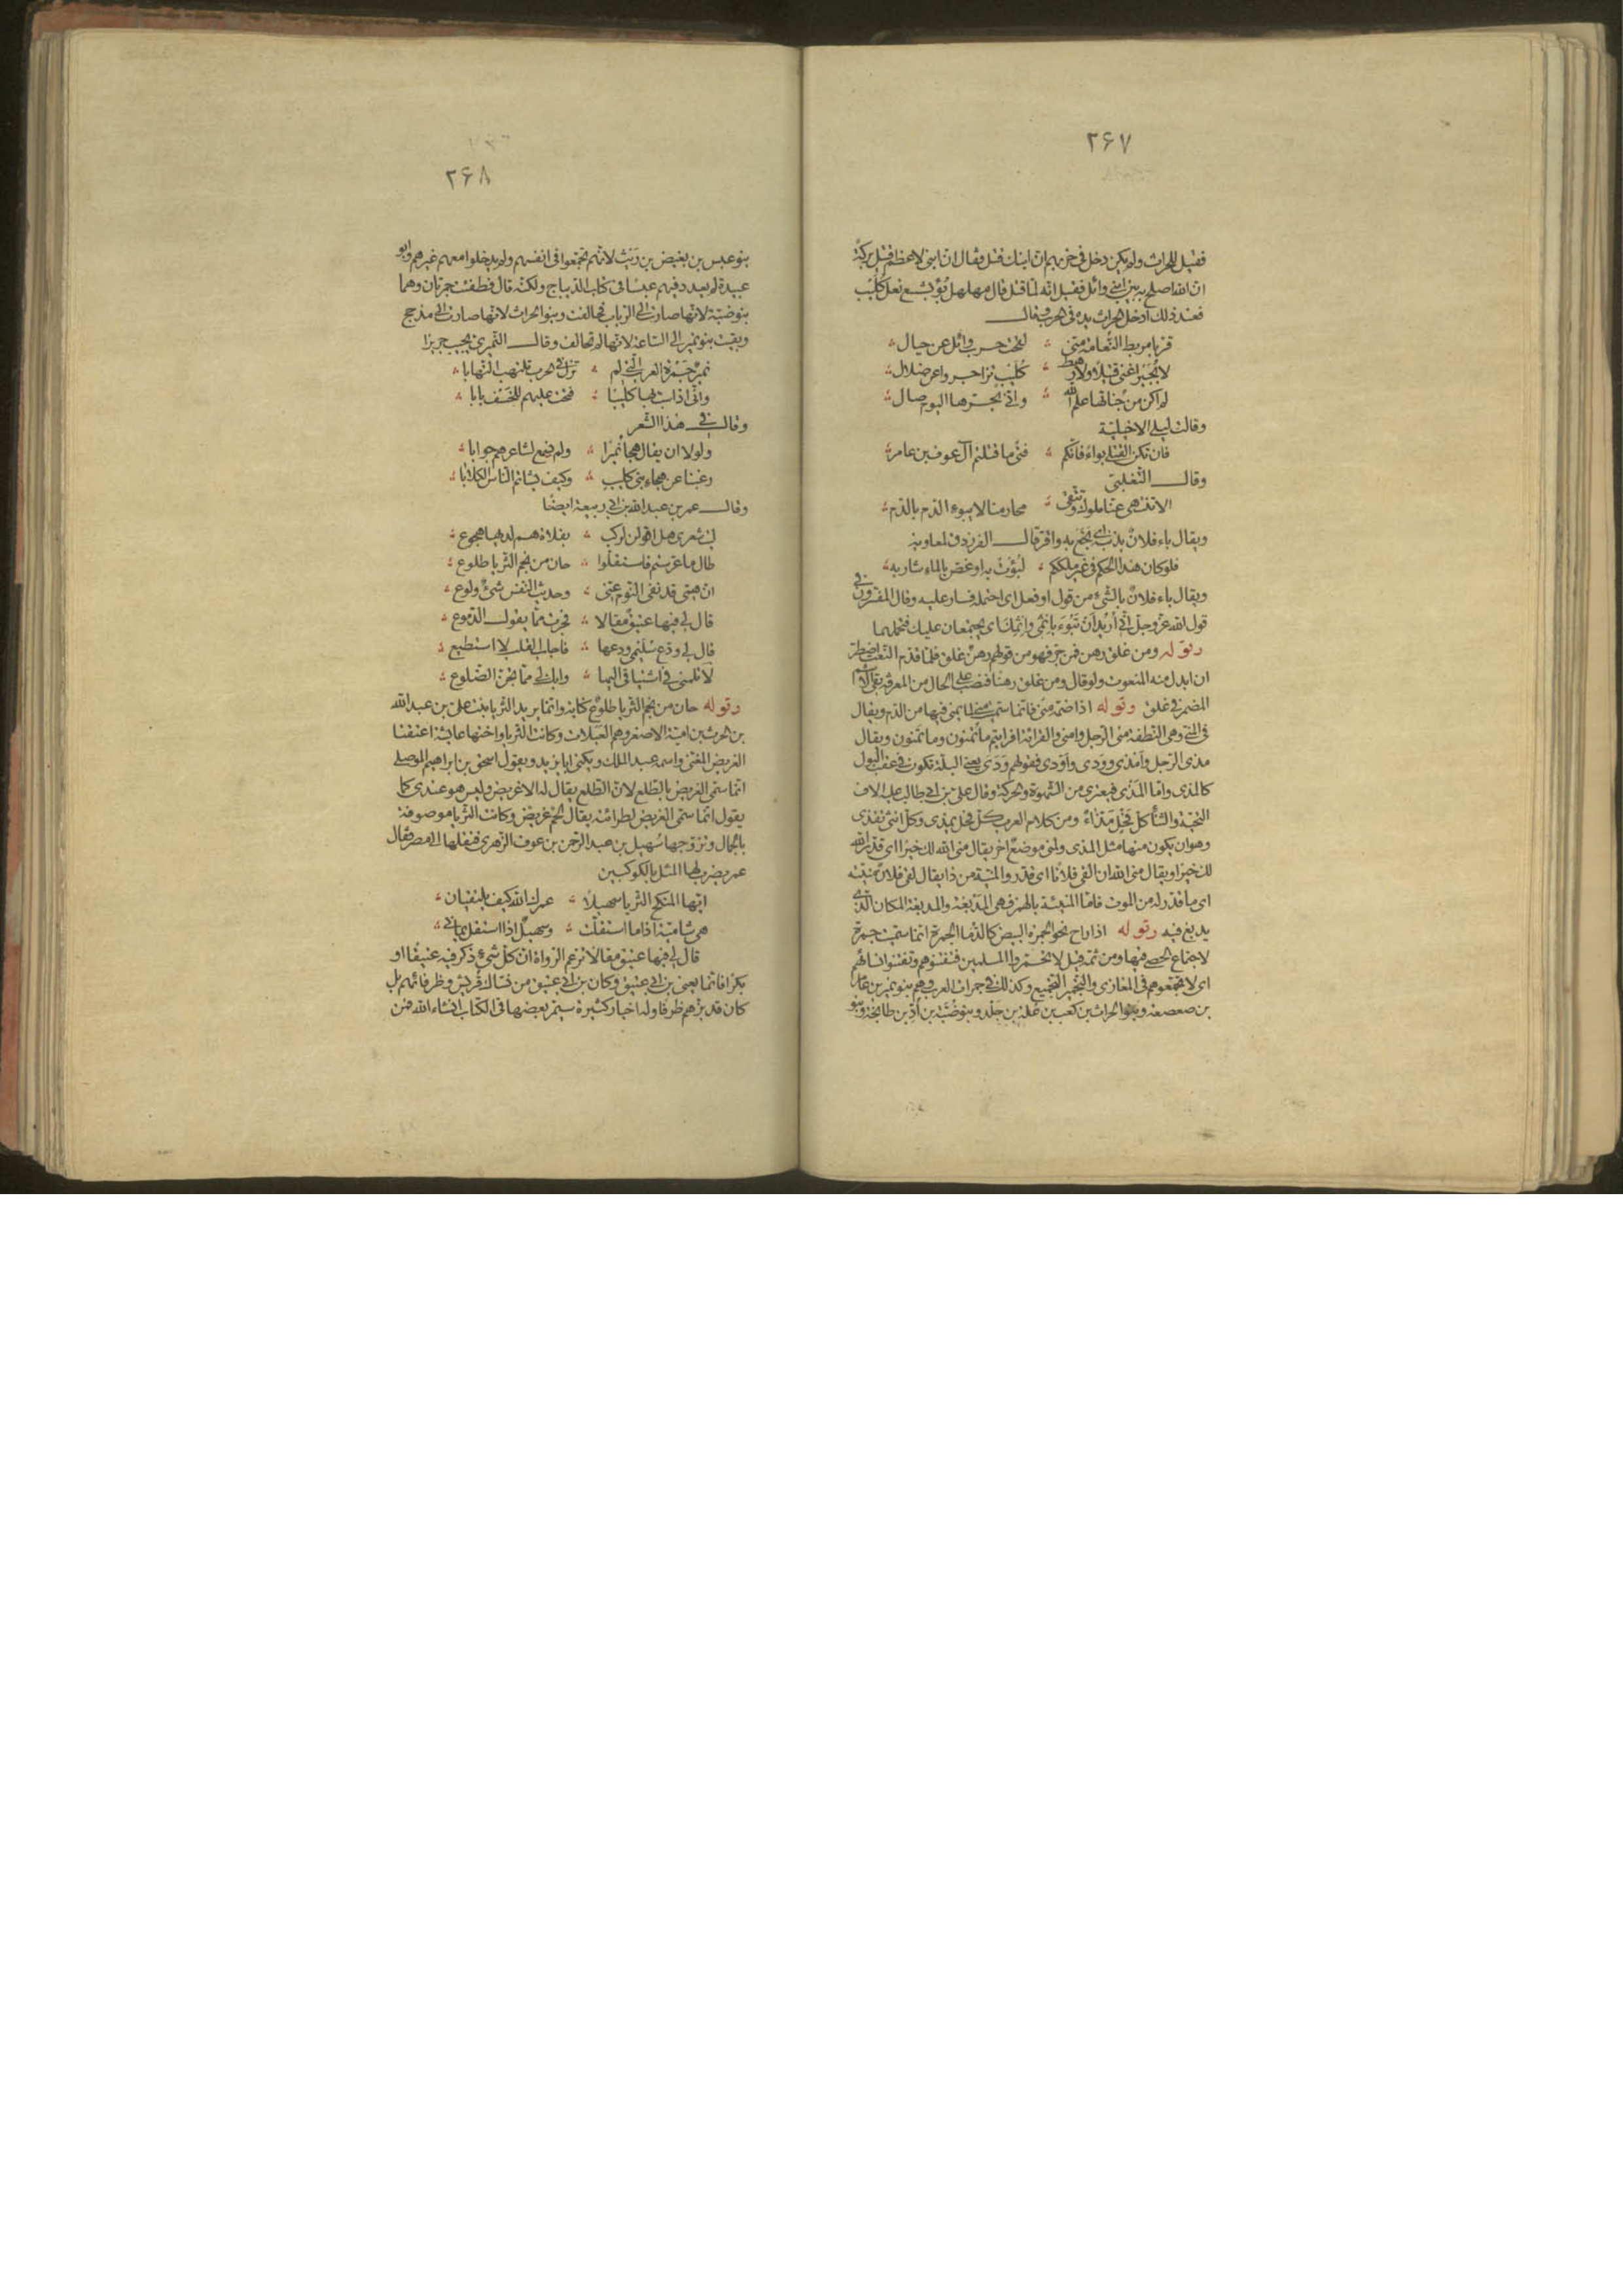 ٢۶٧
فقيل للحراث ولم يكن دخل فى حربهم ان ابنك قتل وقال ان ابنى لاعظم قتيل بركة
ان الله اصلح به بين ابنى وائل فقيل انه لما قتل قال مهلهل بؤ بشسع نعل كليب
فعند ذلك ادخل الحراث يده فى الحرب وقال
قربا مربط النعامة منى لقحت حرب وائل عن حيال
لا بجير اغنى قتيلا ولا رهط كليب تزاجروا عن ضلال
لم اكن من جناتها علم الله وانى بحرها اليوم صال
وقالت ليلى الاخيلية
فان تكن القتلى بواء فانكم فتى ما قتلتم آل عوف بن عامر
وقال التغلبى
الا تنتهى عنا ملوك وتتقى محارمنا لا يبوء الدم بالدم
ويقال باء فلان بذنبه اى بخع به واقر قال الفرزدق لمعاوية
فلو كان هذا الحكم فى غير ملككم لبؤت به او غص بالماء شاربه
ويقال باء فلان بالشىء من قول او فعل اى احتمله فصار عليه وقال المفسرون فى
قول الله عز وجل انى اريد ان تبوء باثمى واثمك اى يجتمعان عليك فتحملهما
وقوله ومن غلق رهن فمن جر فهو من قولهم رهن غلق فلما قدم النعت اضطر
ان ابدل منه المنعوت ولو قال ومن غلق رهنا فنصب على الحال من المعرفة
المضمر فى غلق وقوله اذا ضمه منى فانما سميت منى لما يمنى فيها من الدم ويقال
فى المنى وهى النطفة منى الرجل وامنى والقرائة افرايتم ما تمنون وما تمنون ويقال
مذى الرجل وامذى وودى واودى فقولهم ودى يعنى البلة تكون فى عقب البول
كالمذى واما المذى فيعترى من الشهوة والحركة وقال على بن ابى طالب عليه الاف
التحية والثناء كل فحل مذاء ومن كلام العرب كل فحل يمذى وكل انثى تقذى
وهو ان يكون منها مثل المذى ولمنى موضع اخر يقال منى الله لك خيرا اى قدر الله
لك خيرا ويقال منى الله ان القى فلانا اى قدر والمنية من ذا يقال لقى فلان منيته
اى ما قدر له من الموت فاما المنيئة بالهمز فهى المدبغة والمدبغة المكان الذى
يدبغ فيه وقوله اذا راح نحو الجمرة البيض كالدما الجمرة انما سميت جمرة
لاجتماع الحصى فيها ومن ثمة قيل لا تجمروا المسلمين فتفتنوهم وتفتنوا نسائهم
اى لا تجمعوهم فى المغازى والتجمير التجميع وكذلك فى جمرات العرب وهم بنو نمير بن عامر
بن صعصعة وبنو الحراث بن كعب بن علة بن جلد وبنو ضبة بن اد بن طابخة وبنو
٢۶٨
بنو عبس بن بغيض بن ريث لانهم تجمعوا فى انفسهم ولم يدخلوا معهم غيرهم وابو
عبيدة لم يعدد فيهم عبسا فى كتاب الديباج ولكنه قال فطفئت جمرتان وهما
بنو ضبة لانها صارت الى الرباب فحالفت وبنو الحراث لانها صارت الى مذحج
وبقيت بنو نمير الى الساعة لانها لم تحالف وقال النميرى يجيب جريرا
نمير جمرة العرب التى لم تزل فى الحرب تلتهب التهابا
وانى اذ اسب بها كليبا فتحت عليهم للخسف بابا
وقال فى هذا الشعر
ولولا ان يقال هجا نميرا ولم نسمع لشاعرهم جوابا
رغبنا عن هجاء بنى كليب وكيف يشاتم الناس الكلابا
وقال عمر بن عبد الله بن ابى ربيعة ايضا
ليت شعرى هل اقولن لركب بفلاة هم لديها هجوع
طال ما عرستم فاستقلوا حان من نجم الثريا طلوع
ان همى قد نفى النوم عنى وحديث النفس شىء ولوع
قال لى فيها عتيق مقالا فجرت مما يقول الدموع
قال لى ودع سليمى ودعها فاجاب القلب لا استطيع
لا تلمنى فى اشتياقى اليها وابك لى مما تجن الضلوع
وقوله حان من نجم الثريا طلوع كناية وانما يريد الثريا بنت على بن عبد الله
بن الحرث بن امية الاصغر وهم العبلات وكانت الثريا واختها عايشة اعتقتا
الغريض المغنى واسمه عبد الملك ويكنى ابا يزيد ويقول اسحق بن ابراهيم الموصلى
انما سمى الغريض بالطلع لان الطلع يقال له الاغريض وليس هو عندى كما
يقول انما سمى الغريض لطرائته يقال لحم غريض وكانت الثريا موصوفة
بالجمال وتزوجها سهيل بن عبد الرحمن بن عوف الزهرى فنقلها الى مصر فقال
عمر يضرب لهما المثل بالكوكبين
ايها المنكح الثريا سهيلا عمرك الله كيف يلتقيان
هى شامية اذا ما استقلت وسهيل اذا استقل يمانى
قال لى فيها عتيق مقالا تزعم الرواة ان كل شىء ذكر فيه عتيقا او
بكرا فانما يعنى بن ابى عتيق وكان بن ابى عتيق من نساك قريش وظرفائهم بل
كان قد بزهم ظرفا وله اخبار كثيرة سيمر بعضها فى الكتاب انشاء الله فمن